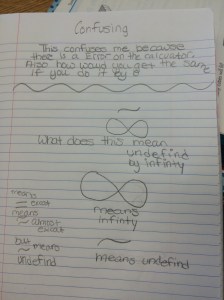 Confusing
This confuses me because
there is a Error on the calculator.
Also how would you get the same
if you do it by 0
~
∞
What does this mean
undefind
by infinty
∞
means
infinty
~
means undefind
means
~ exact
means
~ almost
exact
but means
~
undefind